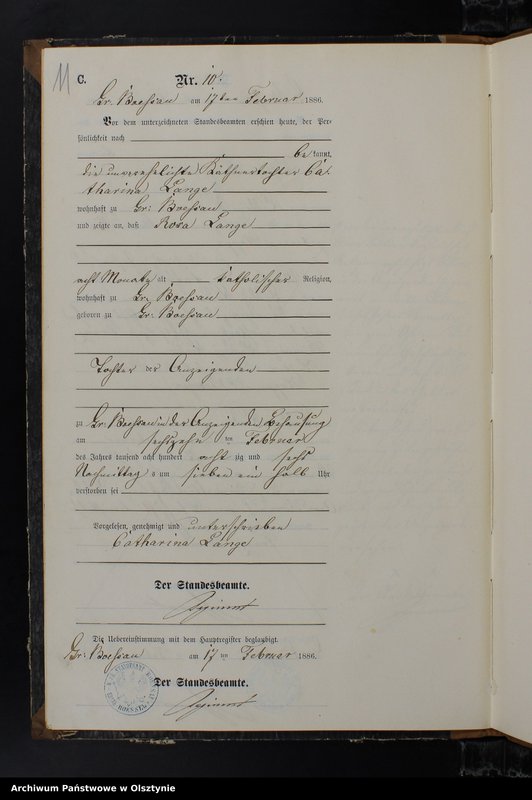 11
C.
Nr. 10.
Gr. Boessau am 17ten Februar 1886.
Vor dem unterzeichneten Standesbeamten erschien heute, der Per-
sönlichkeit nach
be kannt,
die unverehelichte Käthnertochter Ca-
tharina Lange
wohnhaft zu Gr: Boessau
und zeigte an, daß Rosa Lange
acht Monate alt katholischer Religion,
wohnhaft zu Gr: Boessau
geboren zu Gr: Boessau
Tochter der Anzeigenden
zu Gr: Boessau in der Anzeigenden Behausung
am sechszehn ten Februar
des Jahres tausend acht hundert acht zig und sechs
Nachmittag s um sieben ein halb Uhr
verstorben sei
Vorgelesen, genehmigt und unterschrieben
Catharina Lange
Der Standesbeamte.
Die Uebereinstimmung mit dem Hauptregister beglaubigt.
Gr: Boessau am 17 ten Februar 1886.
Der Standesbeamte.
Archiwum Państwowe w Olsztynie